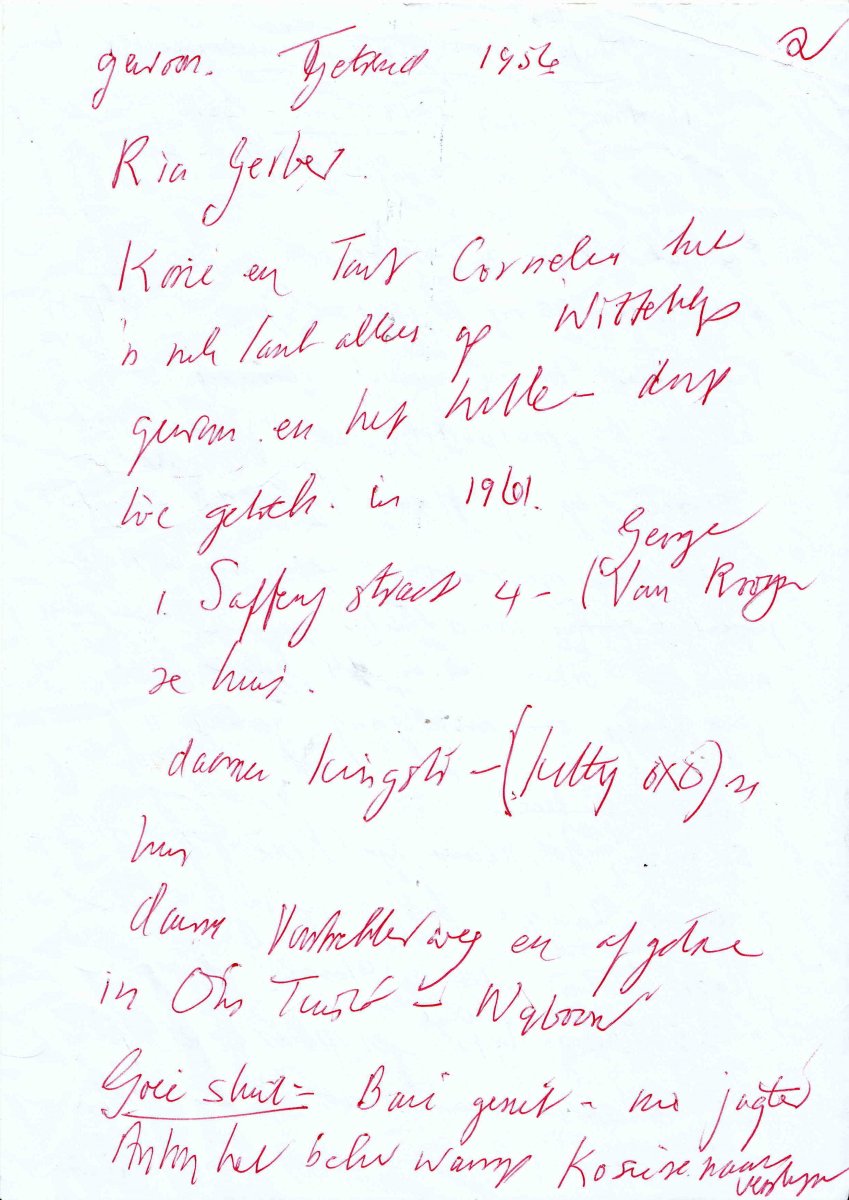 2
gewoon. Getroud 1956
Ria Gerber.
Kosie en Tant Cornelia het
'n ruk lank alleen op Wittekop
gewoon en het hulle dorp
toe getrek. in 1961.
George
1. Saffery straat 4 - (Van Rooyen
se huis.
daarna - (Kitty
huis
daarna Voortrekkerweg en afgetree
in Ons Tuiste -
Goie skut = Baie geniet - jagter
het Kosie se naam